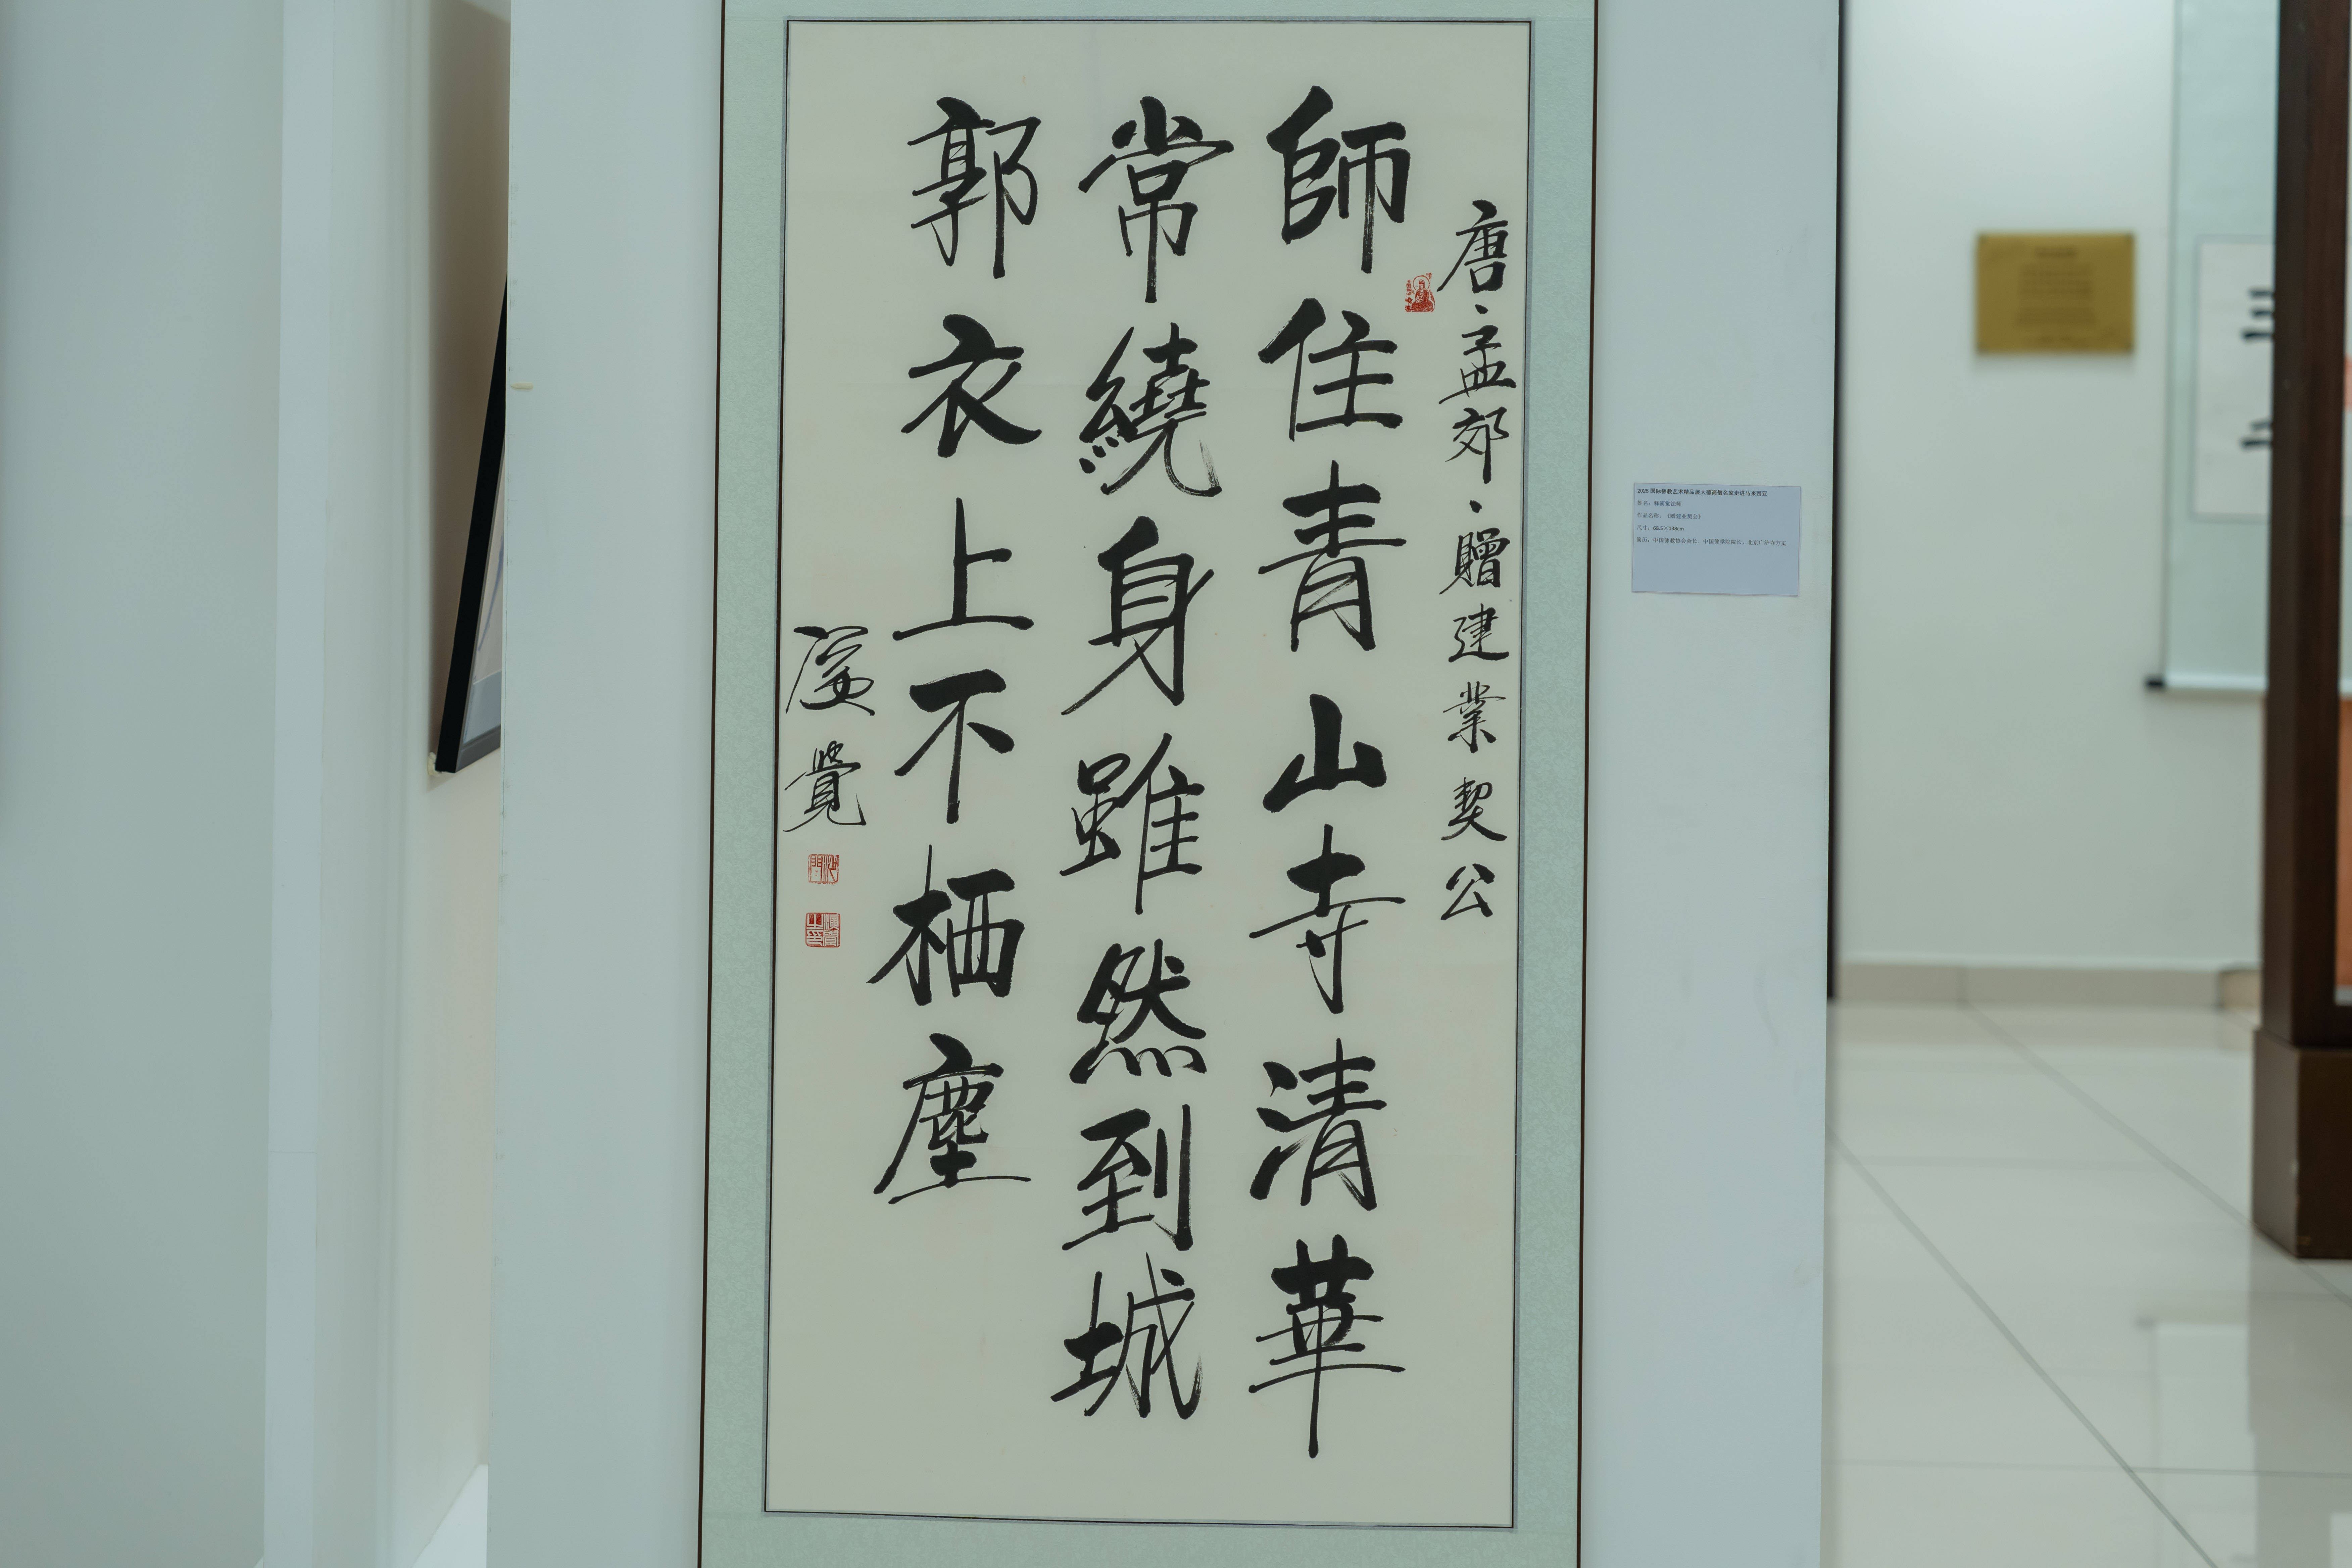 唐、孟郊、贈建業契公
師住青山寺清華
常繞身雖然到城
郭衣上不栖塵
演覺
2025国际佛教艺术精品展大德高僧名家走进马来西亚
姓名：释演觉法师
作品名称：《赠建业契公》
尺寸：68.5×138cm
简历：中国佛教协会会长、中国佛学院院长、北京广济寺方丈